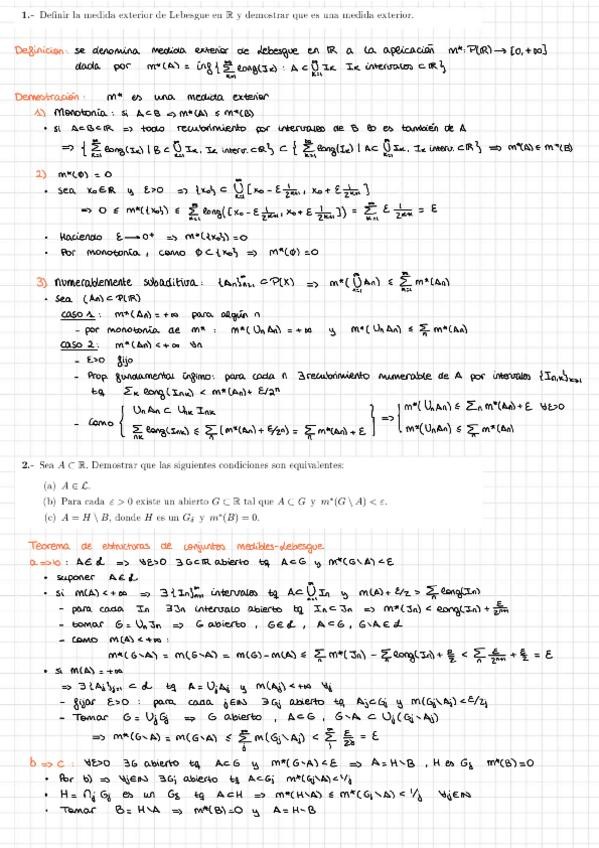 1.- Definir la medida exterior de Lebesgue en ℝ y demostrar que es una medida exterior.
Definición: se denomina medida exterior de Lebesgue en ℝ a la aplicación m*: P(ℝ) → [0, +∞]
dada por m*(A) = inf { ∑ long(Iₖ) : A ⊂ ⋃ Iₖ Iₖ intervalos ⊂ ℝ }
Demostración: m* es una medida exterior
1) Monotonía: si A⊂B ⇒ m*(A) ≤ m*(B)
• si A⊂B⊂ℝ ⇒ todo recubrimiento por intervalos de B lo es también de A
⇒ { ∑ long(Iₖ) | B ⊂ ⋃ Iₖ, Iₖ interv. ⊂ ℝ } ⊂ { ∑ long(Iₖ) | A ⊂ ⋃ Iₖ, Iₖ interv. ⊂ ℝ } ⇒ m*(A) ≤ m*(B)
2) m*(∅) = 0
• sea x₀∈ℝ y ε>0 ⇒ {x₀} ⊂ ⋃ [x₀ - ε 1/2ᵏ⁺¹, x₀ + ε 1/2ᵏ⁺¹]
⇒ 0 ≤ m*({x₀}) ≤ ∑ long([x₀ - ε 1/2ᵏ⁺¹, x₀ + ε 1/2ᵏ⁺¹]) = ∑ ε = ε
• Haciendo ε → 0⁺ ⇒ m*({x₀}) = 0
• Por monotonía, como ∅ ⊂ {x₀} ⇒ m*(∅) = 0
3) Numerablemente subaditiva: {Aₙ} ⊂ P(X) ⇒ m*(⋃ Aₙ) ≤ ∑ m*(Aₙ)
• Sea (Aₙ) ⊂ P(ℝ)
caso 1: m*(Aₙ) = +∞ para algún n
- por monotonía de m*: m*(⋃ₙ Aₙ) = +∞ y m*(⋃ₙ Aₙ) ≤ ∑ₙ m*(Aₙ)
caso 2: m*(Aₙ) < +∞ ∀n
- ε>0 fijo
- Prop. fundamental ínfimo: para cada n ∃ recubrimiento numerable de A por intervalos {Iₙ,ₖ}ₖ≥₁
tq ∑ₖ long(Iₙₖ) < m*(Aₙ) + ε/2ⁿ
- Como { ⋃ₙ Aₙ ⊂ ⋃ₙₖ Iₙₖ } ⇒ { m*(⋃ₙ Aₙ) ≤ ∑ₙ m*(Aₙ) + ε ∀ε>0
∑ long(Iₙₖ) ≤ ∑ (m*(Aₙ) + ε/2ⁿ) = ∑ m*(Aₙ) + ε m*(⋃ₙ Aₙ) ≤ ∑ m*(Aₙ)
2.- Sea A ⊂ ℝ. Demostrar que las siguientes condiciones son equivalentes:
(a) A ∈ ℒ.
(b) Para cada ε > 0 existe un abierto G ⊂ ℝ tal que A ⊂ G y m*(G \ A) < ε.
(c) A = H \ B, donde H es un G_δ y m*(B) = 0.
Teorema de estructuras de conjuntos medibles-Lebesgue
a ⇒ b: A∈ℒ ⇒ ∀ε>0 ∃G⊂ℝ abierto tq A⊂G y m*(G\A) < ε
• suponer A∈ℒ
• si m(A) < +∞ ⇒ ∃{Iₙ} intervalos tq A⊂⋃ Iₙ y m(A) + ε/2 > ∑ long(Iₙ)
- para cada Iₙ ∃Jₙ intervalo abierto tq Iₙ⊂Jₙ ⇒ m*(Jₙ) < long(Iₙ) + ε/2ⁿ⁺¹
- tomar G = ⋃ₙ Jₙ ⇒ G abierto, G∈ℒ, A⊂G, G\A∈ℒ
- como m(A) < +∞:
m*(G\A) = m(G\A) = m(G) - m(A) ≤ ∑ m*(Jₙ) - ∑ long(Iₙ) + ε/2 < ∑ ε/2ⁿ⁺¹ + ε/2 = ε
• si m(A) = +∞
⇒ ∃{Aⱼ}ⱼ≥₁ ⊂ ℒ tq A = ⋃ⱼ Aⱼ y m(Aⱼ) < +∞ ∀j
- fijar ε>0: para cada j∈ℕ ∃Gⱼ abierto tq Aⱼ⊂Gⱼ y m(Gⱼ\Aⱼ) < ε/2ʲ
- Tomar G = ⋃ⱼ Gⱼ ⇒ G abierto, A⊂G, G\A ⊂ ⋃ⱼ(Gⱼ\Aⱼ)
⇒ m*(G\A) = m(G\A) ≤ ∑ m(Gⱼ\Aⱼ) < ∑ ε/2ʲ = ε
b ⇒ c: ∀ε>0 ∃G abierto tq A⊂G y m*(G\A) < ε ⇒ A = H\B, H es G_δ m*(B) = 0
• Por b) ⇒ ∀j∈ℕ ∃Gⱼ abierto tq A⊂Gⱼ m*(Gⱼ\A) < 1/j
• H = ⋂ⱼ Gⱼ es un G_δ tq A⊂H ⇒ m*(H\A) ≤ m*(Gⱼ\A) < 1/j ∀j∈ℕ
• Tomar B = H\A ⇒ m*(B) = 0 y A = H\B